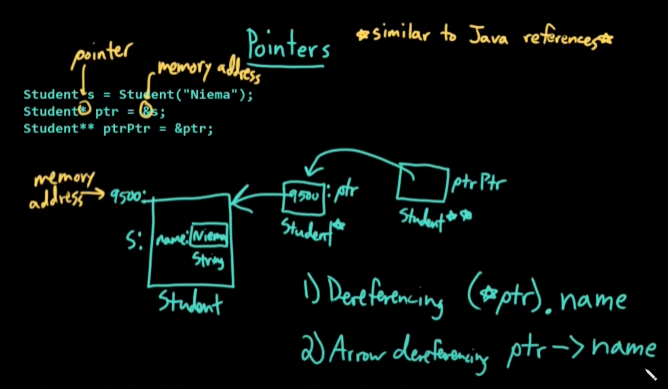 Pointers
*similar to Java references*
pointer
memory address
Student s = Student("Niema");
Student* ptr = &s;
Student** ptrPtr = &ptr;
memory address → 9500:
s:
name: Niema
String
Student
9500 : ptr
Student*
ptrPtr
Student**
1) Dereferencing (*ptr).name
2) Arrow dereferencing ptr->name